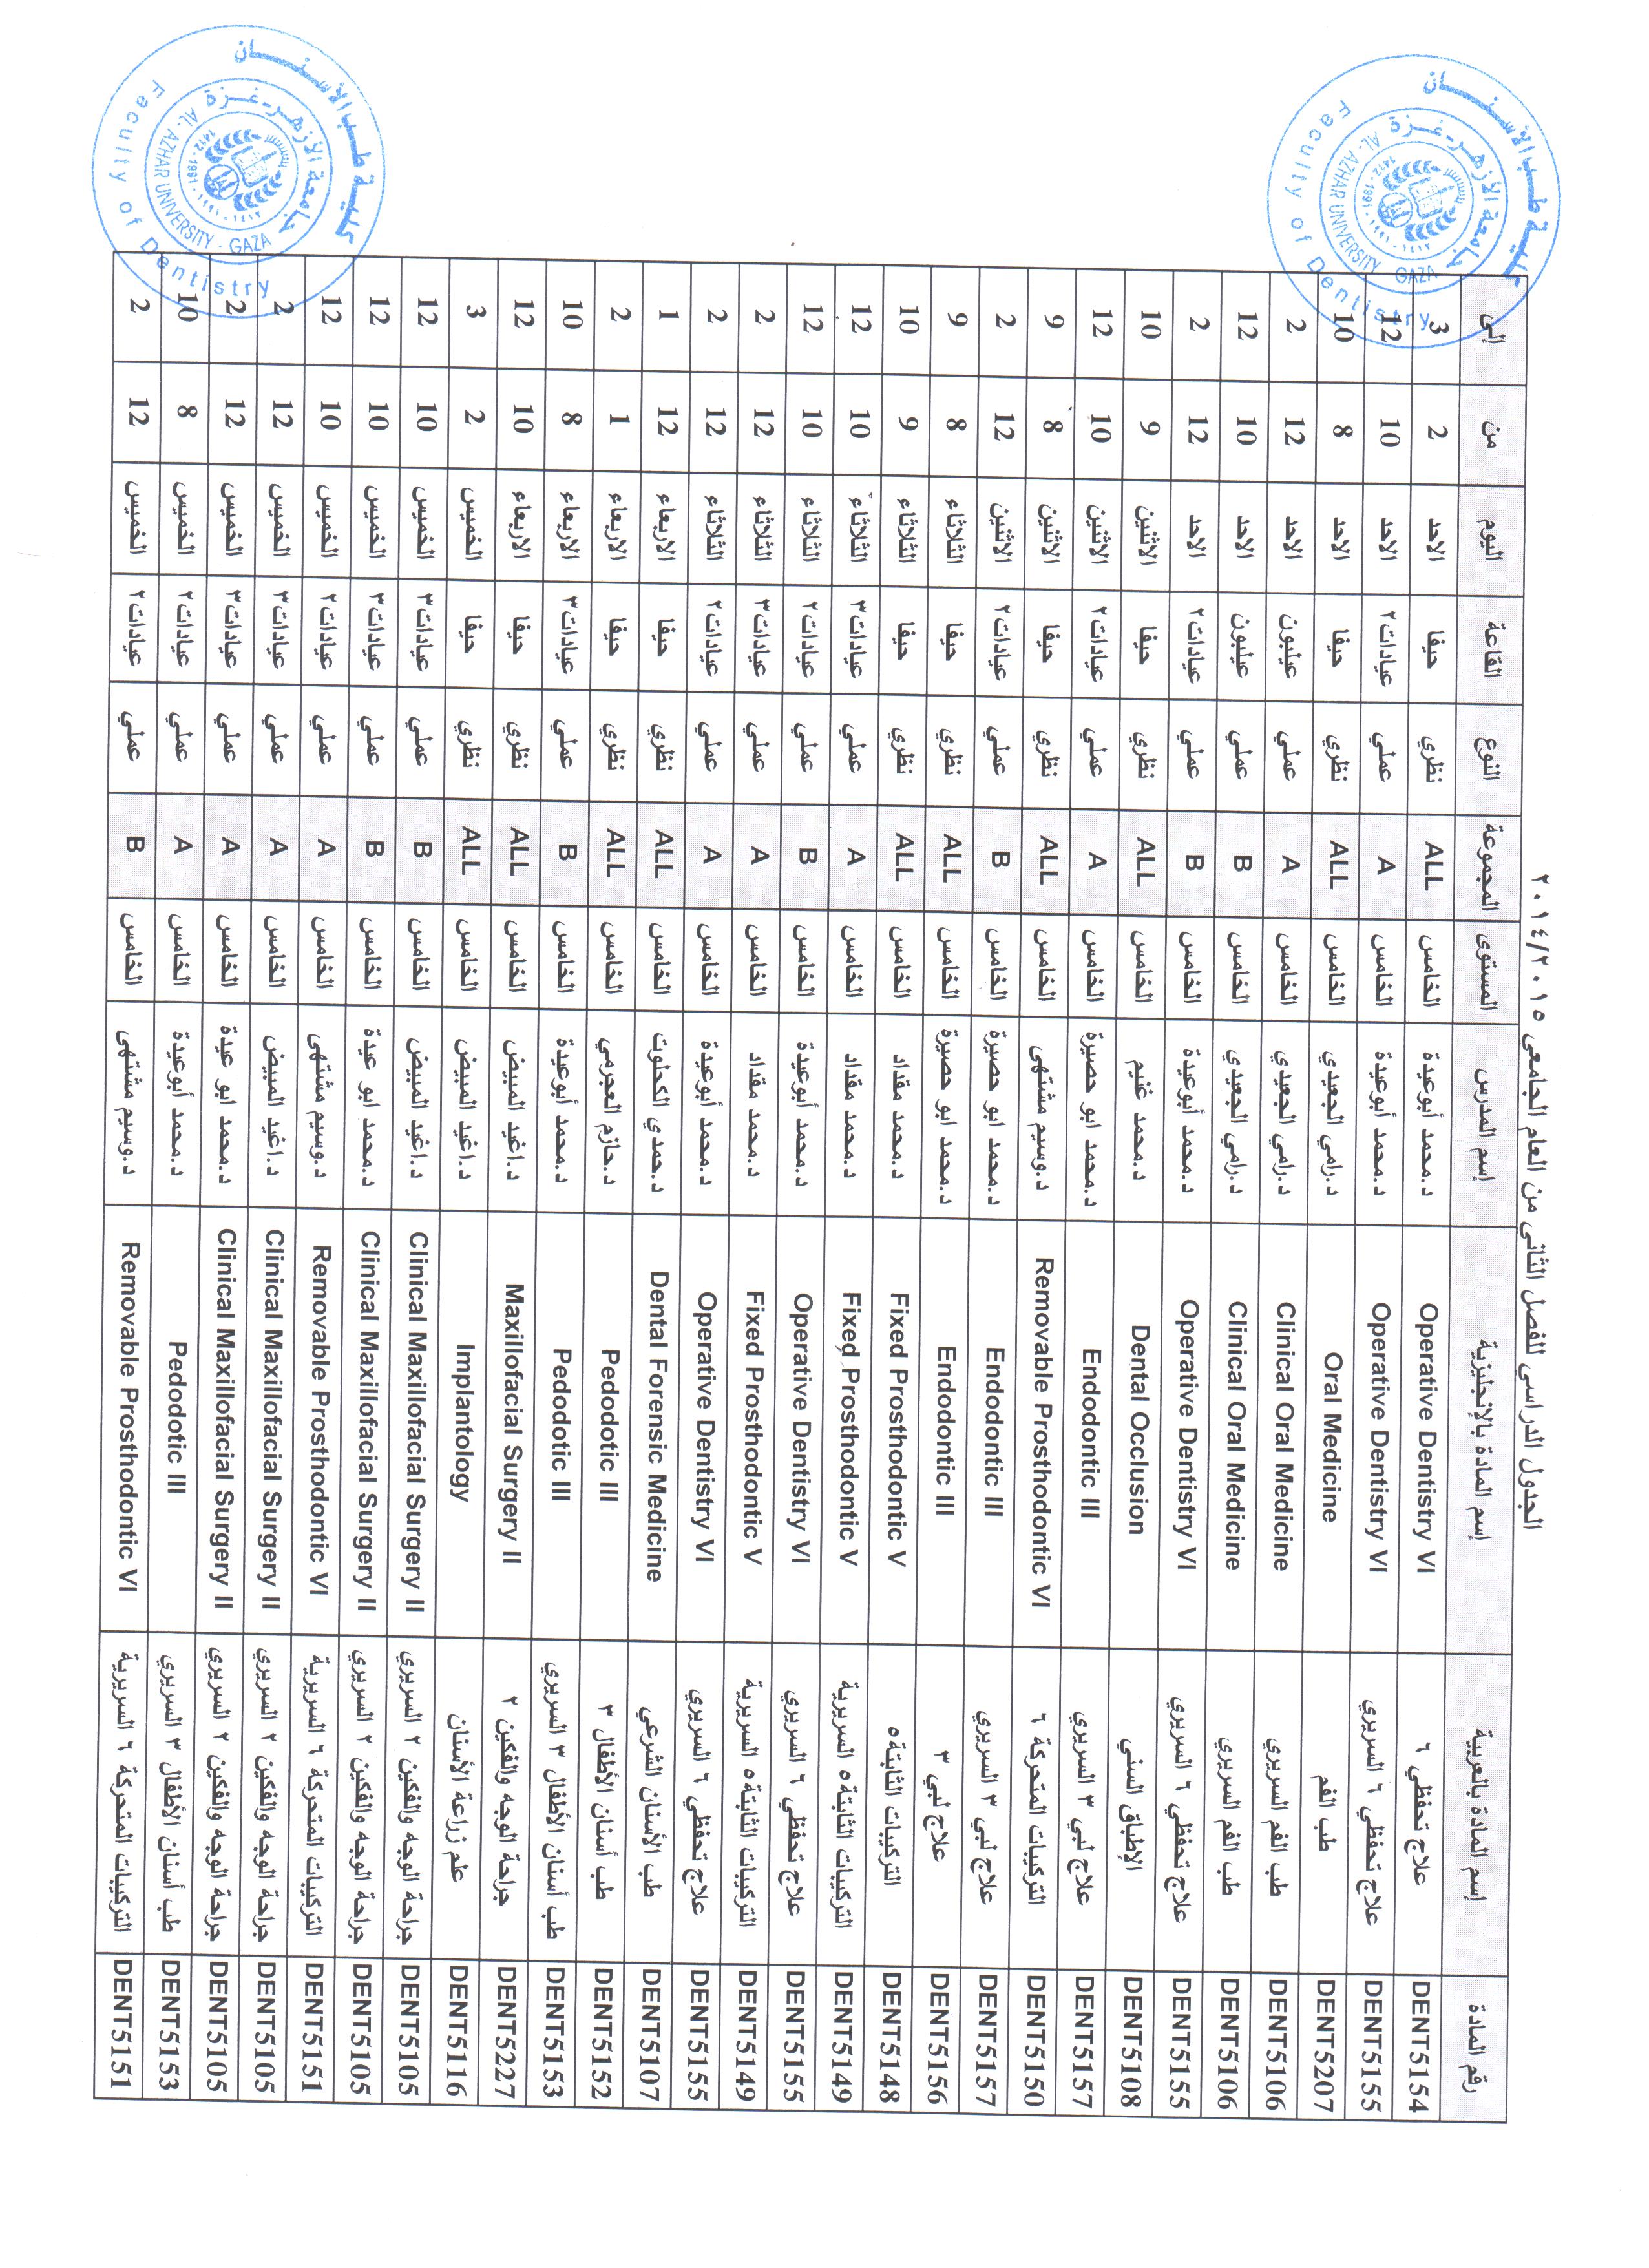 الجدول الدراسي للفصل الثاني من العام الجامعي ٢٠١٤/٢٠١٥
رقم المادة إسم المادة بالعربية إسم المادة بالإنجليزية إسم المدرس المستوى المجموعة النوع القاعة اليوم من إلى
DENT5154 علاج تحفظي ٦ Operative Dentistry VI د.محمد أبوعيدة الخامس ALL نظري حيفا الاحد 2 3
DENT5155 علاج تحفظي ٦ السريري Operative Dentistry VI د.محمد أبوعيدة الخامس A عملي عيادات٢ الاحد 10 12
DENT5207 طب الفم Oral Medicine د.رامي الجعيدي الخامس ALL نظري حيفا الاحد 8 10
DENT5106 طب الفم السريري Clinical Oral Medicine د.رامي الجعيدي الخامس A عملي عيلبون الاحد 12 2
DENT5106 طب الفم السريري Clinical Oral Medicine د.رامي الجعيدي الخامس B عملي عيلبون الاحد 10 12
DENT5155 علاج تحفظي ٦ السريري Operative Dentistry VI د.محمد أبوعيدة الخامس B عملي عيادات٢ الاحد 12 2
DENT5108 الإطباق السني Dental Occlusion د.محمد غنيم الخامس ALL نظري حيفا الاثنين 9 10
DENT5157 علاج لبي ٣ السريري Endodontic III د.محمد ابو حصيرة الخامس A عملي عيادات٢ الاثنين 10 12
DENT5150 التركيبات المتحركة ٦ Removable Prosthodontic VI د.وسيم مشتهى الخامس ALL نظري حيفا الاثنين 8 9
DENT5157 علاج لبي ٣ السريري Endodontic III د.محمد ابو حصيرة الخامس B عملي عيادات٢ الاثنين 12 2
DENT5156 علاج لبي ٣ Endodontic III د.محمد ابو حصيرة الخامس ALL نظري حيفا الثلاثاء 8 9
DENT5148 التركيبات الثابتة٥ Fixed Prosthodontic V د.محمد مقداد الخامس ALL نظري حيفا الثلاثاء 9 10
DENT5149 التركيبات الثابتة٥ السريرية Fixed Prosthodontic V د.محمد مقداد الخامس A عملي عيادات٣ الثلاثاء 10 12
DENT5155 علاج تحفظي ٦ السريري Operative Dentistry VI د.محمد أبوعيدة الخامس B عملي عيادات٢ الثلاثاء 10 12
DENT5149 التركيبات الثابتة٥ السريرية Fixed Prosthodontic V د.محمد مقداد الخامس A عملي عيادات٣ الثلاثاء 12 2
DENT5155 علاج تحفظي ٦ السريري Operative Dentistry VI د.محمد أبوعيدة الخامس A عملي عيادات٢ الثلاثاء 12 2
DENT5107 طب الأسنان الشرعي Dental Forensic Medicine د.حمدي الكحلوت الخامس ALL نظري حيفا الاربعاء 12 1
DENT5152 طب أسنان الأطفال ٣ Pedodotic III د.حازم العجرمي الخامس ALL نظري حيفا الاربعاء 1 2
DENT5153 طب أسنان الأطفال ٣ السريري Pedodotic III د.محمد أبوعيدة الخامس B عملي عيادات٣ الاربعاء 8 10
DENT5227 جراحة الوجه والفكين ٢ Maxillofacial Surgery II د.اغيد المبيض الخامس ALL نظري حيفا الاربعاء 10 12
DENT5116 علم زراعة الأسنان Implantology د.اغيد المبيض الخامس ALL نظري حيفا الخميس 2 3
DENT5105 جراحة الوجه والفكين ٢ السريري Clinical Maxillofacial Surgery II د.اغيد المبيض الخامس B عملي عيادات٣ الخميس 10 12
DENT5105 جراحة الوجه والفكين ٢ السريري Clinical Maxillofacial Surgery II د.محمد ابو عيدة الخامس B عملي عيادات٣ الخميس 10 12
DENT5151 التركيبات المتحركة ٦ السريرية Removable Prosthodontic VI د.وسيم مشتهى الخامس A عملي عيادات٢ الخميس 10 12
DENT5105 جراحة الوجه والفكين ٢ السريري Clinical Maxillofacial Surgery II د.اغيد المبيض الخامس A عملي عيادات٣ الخميس 12 2
DENT5105 جراحة الوجه والفكين ٢ السريري Clinical Maxillofacial Surgery II د.محمد ابو عيدة الخامس A عملي عيادات٣ الخميس 12 2
DENT5153 طب أسنان الأطفال ٣ السريري Pedodotic III د.محمد أبوعيدة الخامس A عملي عيادات٢ الخميس 8 10
DENT5151 التركيبات المتحركة ٦ السريرية Removable Prosthodontic VI د.وسيم مشتهى الخامس B عملي عيادات٢ الخميس 12 2
كلية طب الأسنان
جامعة الأزهر-غزة
١٤١٢ - ١٩٩١ - 1991 - 1412
AL-AZHAR UNIVERSITY - GAZA
Faculty of Dentistry
كلية طب الأسنان
جامعة الأزهر-غزة
١٤١٢ - ١٩٩١ - 1991 - 1412
AL-AZHAR UNIVERSITY - GAZA
Faculty of Dentistry